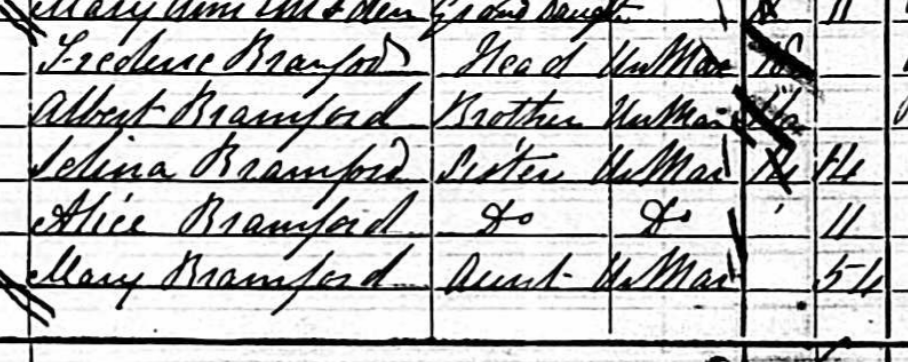 Mary Ann Grand Daugh 11
Frederic Bramford Head UnMar
Albert Bramford Brother UnMar
Selina Bramford Sister UnMar 14
Alice Bramford Do Do 11
Mary Bramford Aunt UnMar 54